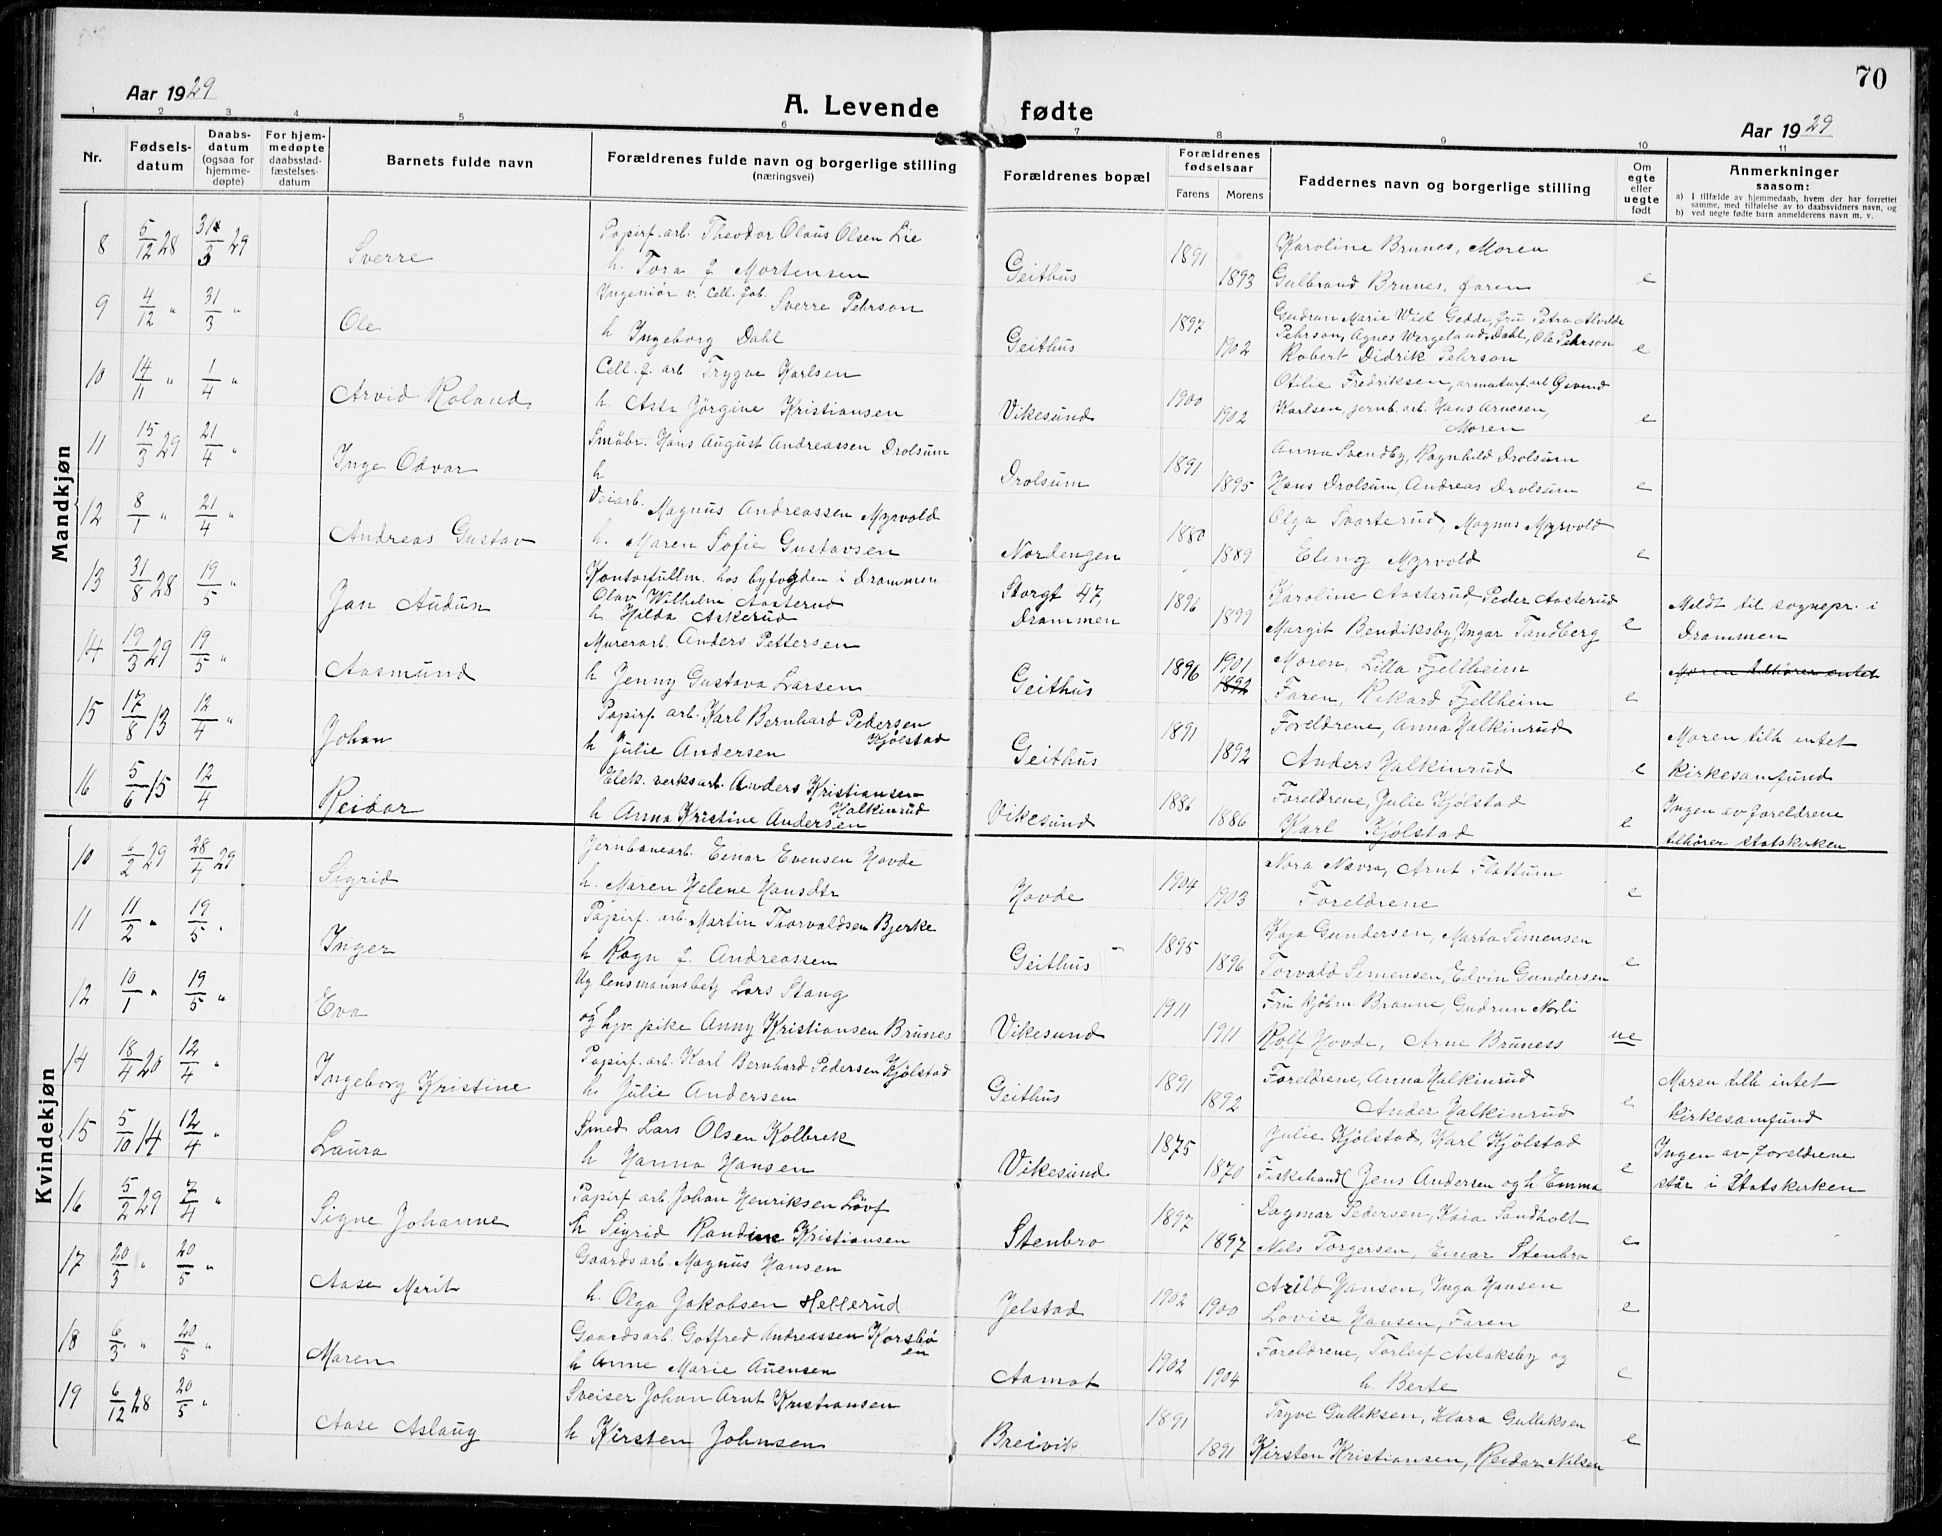 70
Aar 1929
A. Levende fødte
Aar 1929
1 2 3 4 5 6 7 8 9 10 11
Nr.
Fødsels-
datum
Daabs-
datum
(ogsaa for
hjemme-
døpte)
For hjem-
medøpte
daabsstad-
fæstelses-
datum
Barnets fulde navn
Forældrenes fulde navn og borgerlige stilling
(næringsvei)
Forældrenes bopæl
Forældrenes
fødselsaar
Farens Morens
Faddernes navn og borgerlige stilling
Om
egte
eller
uegte
født
Anmerkninger
saasom:
a) I tilfælde av hjemmedaab, hvem der har forrettet
samme, med tilføielse av to daabsvidners navn, og
b) ved uegte fødte barn anmelderens navn m. v.
Mandkjøn
8 5/12 28 31/3 29 Sverre
Papirf. arb. Theodor Olaus Olsen Lie
h. Tora f. Mortensen
Geithus 1891 1893
Karoline Brunes, Moren
Gulbrand Brunes, faren e
9 4/12 " 31/3 " Ole
Ingeniør v. Cell. fab. Sverre Pehrson
h Ingeborg Dahl
Geithus 1897 1902
Gudrun Marie Wiel Gedde, fru Petra Alvilde
Pehrson, Agnes Wergeland Dahl, Ole Pehrson
Robert Didrik Pehrson e
10 14/11 " 1/4 " Arvid Roland
Cell. f. arb Trygve Karlsen
h. Asta Jørgine Kristiansen
Vikesund 1900 1902
Otilie Fredriksen, armaturf. arb Gevund
Karlsen, jernb. arb. Hans Arnesen,
Moren e
11 15/3 29 21/4 " Inge Odvar
Småbr. Hans August Andreassen Drolsum
h
Drolsum 1891 1895
Anna Svendby, Ragnhild Drolsum
Hans Drolsum, Andreas Drolsum e
12 8/1 " 21/4 " Andreas Gustav
Veiarb. Magnus Andreassen Myrvold
h. Maren Sofie Gustavsen
Nordengen 1880 1889
Olga Svarterud, Magnus Myrvold
Eling Myrvold e
13 31/8 28 19/5 " Jan Audun
Kontorfullm. hos byfogden i Drammen
Olav Wilhelm Aasterud
h Hilda Askerud
Storgt 47,
Drammen 1896 1899
Karoline Aasterud, Peder Aasterud
Margit Bendiksby, Ingar Tandberg e
Meldt til sognepr. i
Drammen
14 19/3 29 19/5 " Aasmund
Murerarb. Anders Pettersen
h Jenny Gustava Larsen
Geithus 1896 1901 1892
Moren, Lilla Fjellheim
Faren, Rikard Fjellheim e
Moren tilhører intet
15 17/8 13 12/4 " Johan
Papirf. arb. Karl Bernhard Pedersen
Kjølstad
h Julie Andersen
Geithus 1891 1892
Foreldrene, Anna Halkinrud
Anders Halkinrud e
Moren tilh intet
kirkesamfund
16 5/6 15 12/4 Reidar
Elek. verksarb. Anders Kristiansen
Halkinrud
h Anna Kristine Andersen
Vikesund 1886 1886
Foreldrene, Julie Kjølstad
Karl Kjølstad e
Ingen av foreldrene
tilhører statskirken
Kvindekjøn
10 6/2 29 28/4 29 Sigrid
Jernbanearb. Einar Evensen Hovde
h. Maren Helene Hansdtr
Hovde 1904 1903
Nora Nævra, Arnt Flattum
Foreldrene e
11 11/2 " 19/5 " Inger
Papirf. arb. Martin Thorvaldsen Bjerke
h Ragn f. Andreassen
Geithus 1895 1896
Kaja Gundersen, Marta Simensen
Torvald Simensen, Elvin Gundersen e
12 10/1 " 19/5 " Eva
Ug lensmannsbetj Lars Stang
og hv. pike Anny Kristiansen Brunes
Vikesund 1911 1911
Fru kjøbm. Braune, Gudrun Norli
Rolf Hovde, Arne Bruness ue
14 18/4 20 12/4 " Ingeborg Kristine
Papirf. arb. Karl Bernhard Pedersen Kjølstad
h. Julie Andersen
Geithus 1891 1892
Foreldrene, Anna Halkinrud
Ander Halkinrud e
Moren tilh intet
kirkesamfund
15 5/10 14 12/4 " Laura
Smed Lars Olsen Kolbrek
h Hanna Hansen
Vikesund 1875 1870
Julie Kjølstad, Karl Kjølstad
Fiskehandl Jens Andersen og h Emma e
Ingen av foreldrene
står i Statskirken
16 5/2 29 7/4 " Signe Johanne
Papirf arb. Johan Henriksen Løvf
h Sigrid Randine Kristiansen
Stenbro 1897 1897
Dagmar Pedersen, Kaia Sandholt
Nils Torgersen, Einar Stenbro e
17 20/3 " 20/5 " Aase Marit
Gaardsarb. Magnus Hansen
h. Olga Jakobsen Hellerud
Jelstad 1902 1900
Arild Hansen, Inga Hansen
Lovise Hansen, Faren e
18 6/3 " 20/5 " Maren
Gaardsarb. Gotfred Andreassen Korsbø
en
h Anne Marie Auensen
Aamot 1902 1904
Foreldrene, Torleif Aslaksby og
h. Berte e
19 6/12 28 20/5 " Aase Aslaug
Sveiser Johan Arnt Kristiansen
h Kirsten Johnsen
Breivik 1891 1891
Tryve Gulliksen, Klara Gulliksen
Kirsten Kristiansen, Reidar Nilsen e